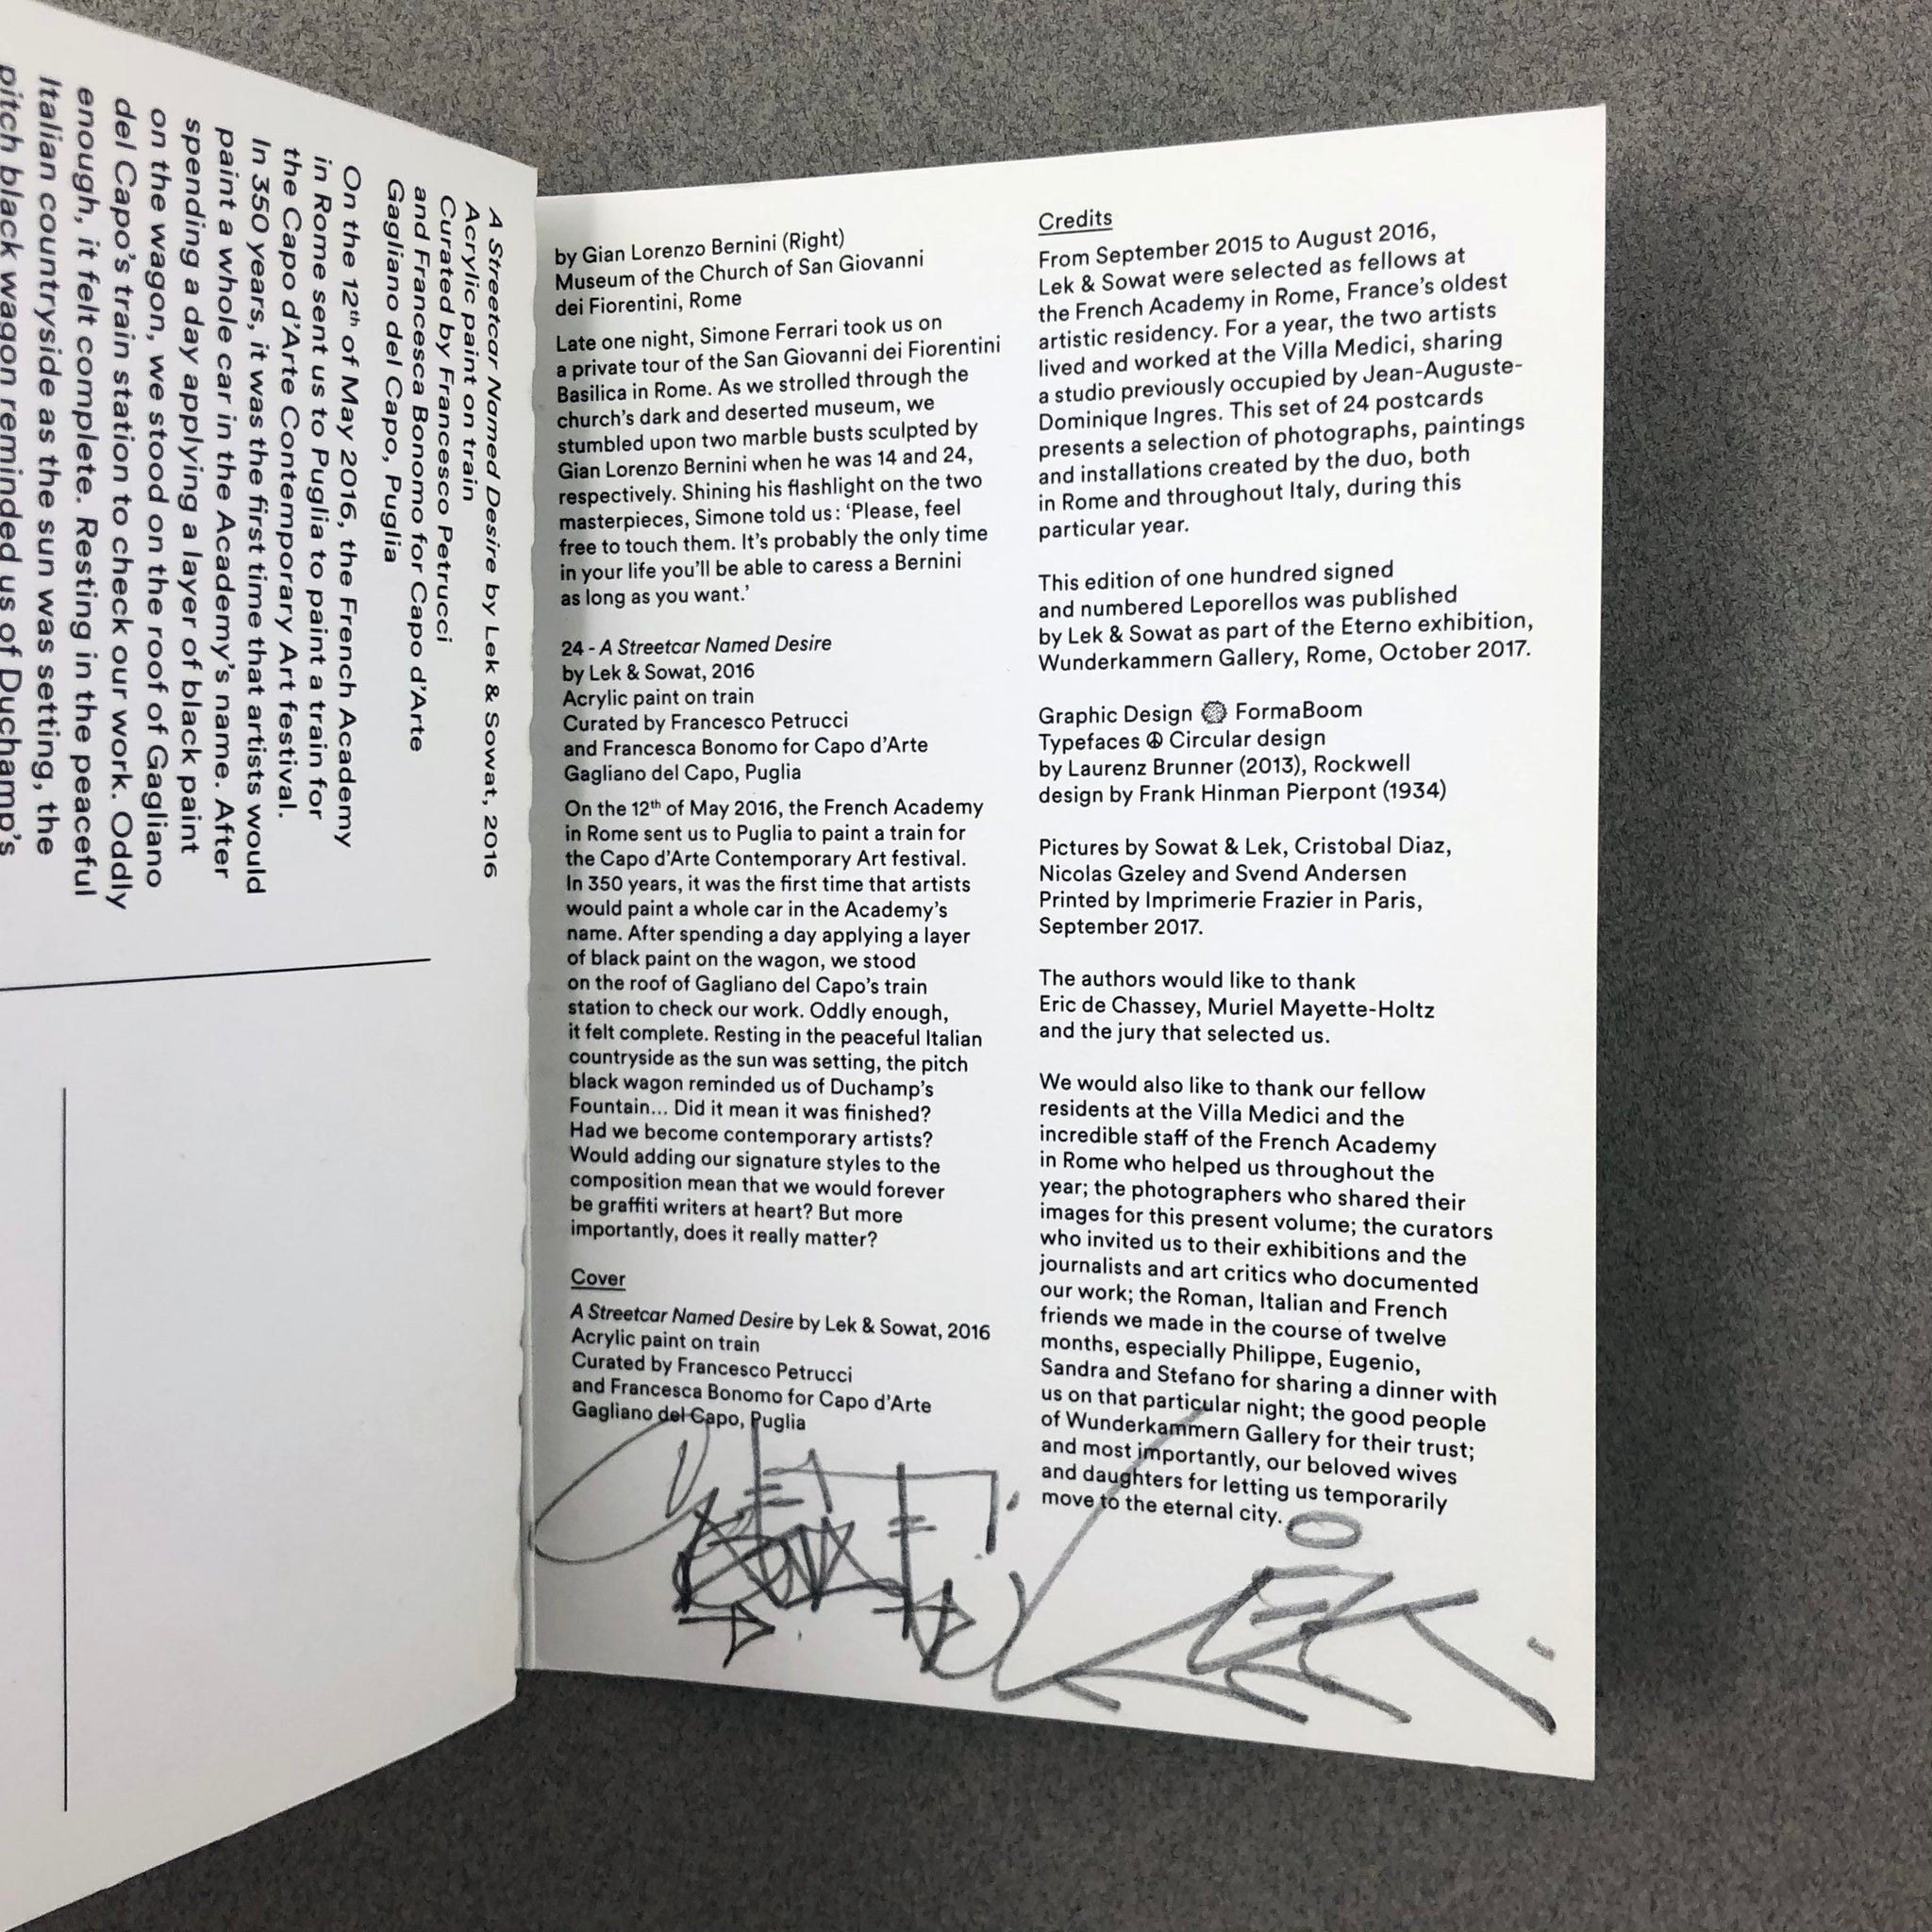 A Streetcar Named Desire by Lek & Sowat, 2016
Acrylic paint on train
Curated by Francesco Petrucci
and Francesca Bonomo for Capo d'Arte
Gagliano del Capo, Puglia
On the 12th of May 2016, the French Academy
in Rome sent us to Puglia to paint a train for
the Capo d'Arte Contemporary Art festival.
In 350 years, it was the first time that artists would
paint a whole car in the Academy's name. After
spending a day applying a layer of black paint
on the wagon, we stood on the roof of Gagliano
del Capo's train station to check our work. Oddly
enough, it felt complete. Resting in the peaceful
Italian countryside as the sun was setting, the
pitch black wagon reminded us of Duchamp's
by Gian Lorenzo Bernini (Right)
Museum of the Church of San Giovanni
dei Fiorentini, Rome
Late one night, Simone Ferrari took us on
a private tour of the San Giovanni dei Fiorentini
Basilica in Rome. As we strolled through the
church's dark and deserted museum, we
stumbled upon two marble busts sculpted by
Gian Lorenzo Bernini when he was 14 and 24,
respectively. Shining his flashlight on the two
masterpieces, Simone told us: ‘Please, feel
free to touch them. It's probably the only time
in your life you'll be able to caress a Bernini
as long as you want.’
24 - A Streetcar Named Desire
by Lek & Sowat, 2016
Acrylic paint on train
Curated by Francesco Petrucci
and Francesca Bonomo for Capo d'Arte
Gagliano del Capo, Puglia
On the 12th of May 2016, the French Academy
in Rome sent us to Puglia to paint a train for
the Capo d'Arte Contemporary Art festival.
In 350 years, it was the first time that artists
would paint a whole car in the Academy's
name. After spending a day applying a layer
of black paint on the wagon, we stood
on the roof of Gagliano del Capo's train
station to check our work. Oddly enough,
it felt complete. Resting in the peaceful Italian
countryside as the sun was setting, the pitch
black wagon reminded us of Duchamp's
Fountain... Did it mean it was finished?
Had we become contemporary artists?
Would adding our signature styles to the
composition mean that we would forever
be graffiti writers at heart? But more
importantly, does it really matter?
Cover
A Streetcar Named Desire by Lek & Sowat, 2016
Acrylic paint on train
Curated by Francesco Petrucci
and Francesca Bonomo for Capo d'Arte
Gagliano del Capo, Puglia
Credits
From September 2015 to August 2016,
Lek & Sowat were selected as fellows at
the French Academy in Rome, France's oldest
artistic residency. For a year, the two artists
lived and worked at the Villa Medici, sharing
a studio previously occupied by Jean-Auguste-
Dominique Ingres. This set of 24 postcards
presents a selection of photographs, paintings
and installations created by the duo, both
in Rome and throughout Italy, during this
particular year.
This edition of one hundred signed
and numbered Leporellos was published
by Lek & Sowat as part of the Eterno exhibition,
Wunderkammern Gallery, Rome, October 2017.
Graphic Design FormaBoom
Typefaces ☮ Circular design
by Laurenz Brunner (2013), Rockwell
design by Frank Hinman Pierpont (1934)
Pictures by Sowat & Lek, Cristobal Diaz,
Nicolas Gzeley and Svend Andersen
Printed by Imprimerie Frazier in Paris,
September 2017.
The authors would like to thank
Eric de Chassey, Muriel Mayette-Holtz
and the jury that selected us.
We would also like to thank our fellow
residents at the Villa Medici and the
incredible staff of the French Academy
in Rome who helped us throughout the
year; the photographers who shared their
images for this present volume; the curators
who invited us to their exhibitions and the
journalists and art critics who documented
our work; the Roman, Italian and French
friends we made in the course of twelve
months, especially Philippe, Eugenio,
Sandra and Stefano for sharing a dinner with
us on that particular night; the good people
of Wunderkammern Gallery for their trust;
and most importantly, our beloved wives
and daughters for letting us temporarily
move to the eternal city.
LEK